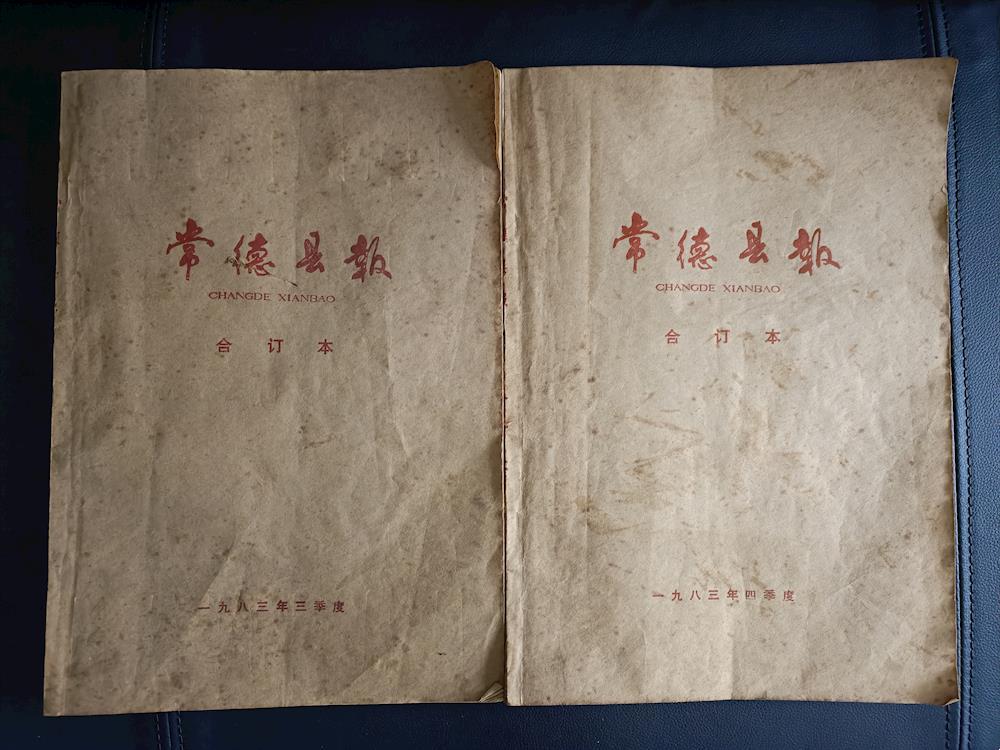 常德县報
CHANGDE XIANBAO
合订本
一九八三年三季度
常德县報
CHANGDE XIANBAO
合订本
一九八三年四季度